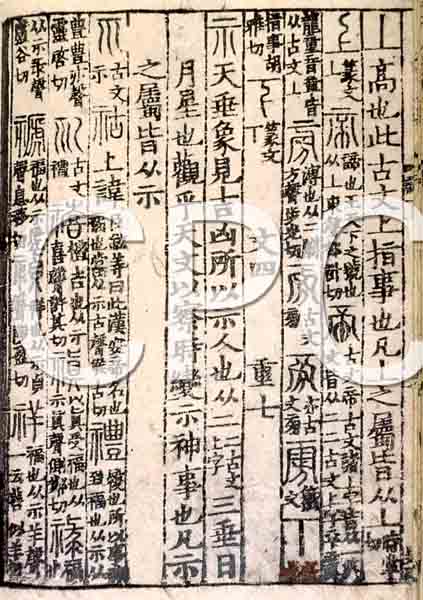 丄高也此古文上指事也凡丄之屬皆从丄時掌切
篆文丄 帝諦也王天下之號也从丄朿聲都計切 古文帝古文諸丄字皆从一篆文皆从二二古文上字䇂示辰
龍童音章皆从古文上 旁溥也从二闕方聲步光切 古文㫄 亦古文㫄 籒文 丅
指事胡雅切 篆文丅 文四 重七
示天垂象見吉凶所以示人也从二二古文上字三垂日
月星也觀乎天文以察時變示神事也凡示
之屬皆从示
古文示 祜上諱臣鉉等曰此漢安帝名也福也當从示古聲 禮履也所以事神致福也从示从
豊豊亦聲靈啓切 古文禮 禧禮吉也从示喜聲許其切 禛以真受福也从示真聲側鄰切 祿福
也从示彔聲盧谷切 禠福也从示虒聲息移切 禎 祥福也从示羊聲一云善似羊切
CPC